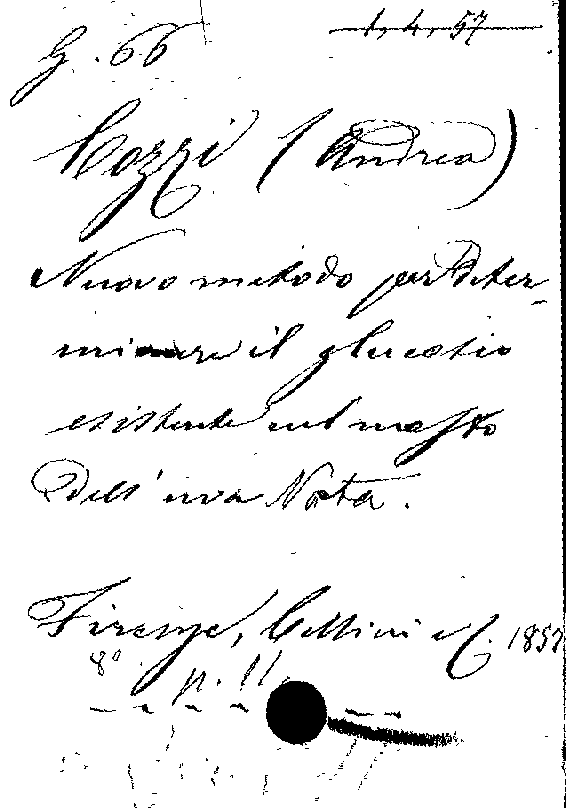 G. 66
1, 4, 57
Cozzi (Andrea)
Nuovo metodo per deter-
minare il glucosio
esistente nel mosto
dell'uva Nota.
Firenze, Cellini e C. 1857
8° p. 11